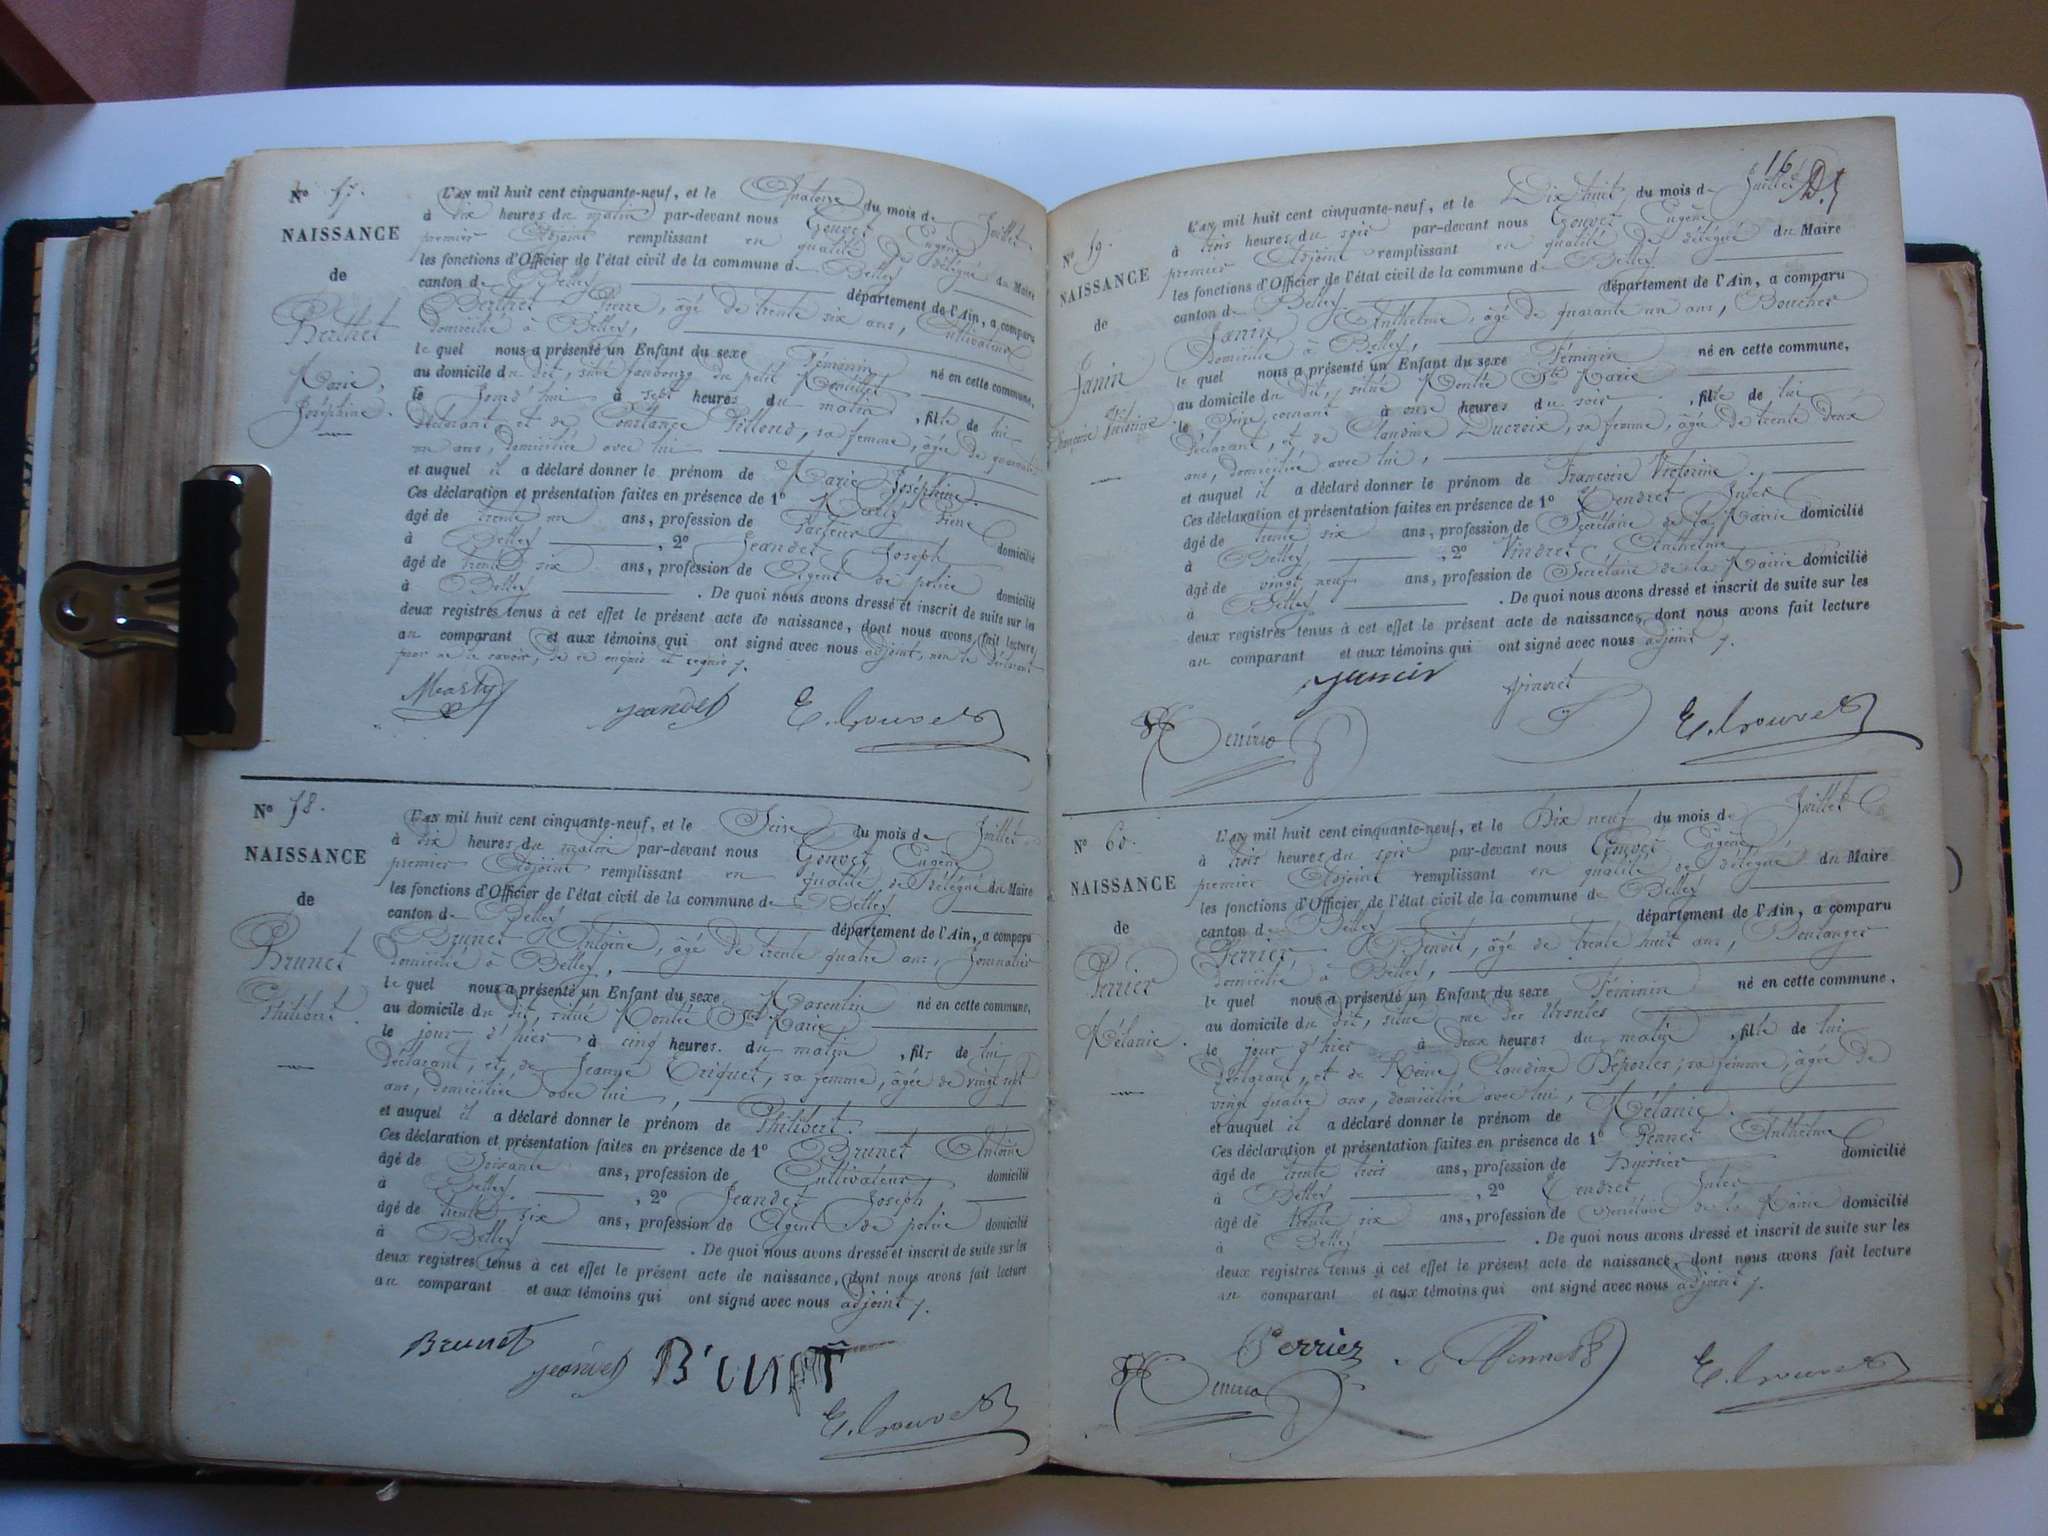 N° 57.
NAISSANCE
de
Berthet
Marie,
Joséphine.
L'an mil huit cent cinquante-neuf, et le Quatorze du mois de Juillet
à dix heures du matin par-devant nous Gouvet Eugène
premier Adjoint remplissant en qualité de délégué du Maire
les fonctions d'Officier de l'état civil de la commune de Belley
canton de Belley département de l'Ain, a comparu
Berthet Pierre, âgé de trente six ans, Cultivateur
domicilié à Belley,
le quel nous a présenté un Enfant du sexe Féminin né en cette commune,
au domicile du dit, situé faubourg du petit
le jourd'hui à sept heures du matin, fille de lui
déclarant, et de Constance sa femme, âgée de quarante
un ans, domiciliée avec lui
et auquel il a déclaré donner le prénom de Marie Joséphine.
Ces déclaration et présentation faites en présence de 1° Marty
âgé de trente un ans, profession de Facteur domicilié
à Belley, 2° Jeandet Joseph
âgé de trente six ans, profession de Agent de police domicilié
à Belley. De quoi nous avons dressé et inscrit de suite sur les
deux registres tenus à cet effet le présent acte de naissance, dont nous avons fait lecture
au comparant et aux témoins qui ont signé avec nous adjoint, non le déclarant
pour ne le savoir, de ce enquis et requis /.
Marty Jeandet E. Gouvet
N° 58.
NAISSANCE
de
Brunet
Philibert
L'an mil huit cent cinquante-neuf, et le Seize du mois de Juillet
à dix heures du matin par-devant nous Gouvet Eugène
premier Adjoint remplissant en qualité de délégué du Maire
les fonctions d'Officier de l'état civil de la commune de Belley
canton de Belley département de l'Ain, a comparu
Brunet Antoine, âgé de trente quatre ans, Journalier
domicilié à Belley,
le quel nous a présenté un Enfant du sexe Masculin né en cette commune,
au domicile du dit, situé Montée Ste Marie
le jour d'hier à cinq heures du matin, fils de lui
déclarant, et de Jeanne Criquet, sa femme, âgée de vingt sept
ans, domiciliée avec lui,
et auquel il a déclaré donner le prénom de Philibert.
Ces déclaration et présentation faites en présence de 1° Brunet Antoine
âgé de Soixante ans, profession de Cultivateur domicilié
à Belley, 2° Jeandet Joseph,
âgé de trente six ans, profession de Agent de police domicilié
à Belley. De quoi nous avons dressé et inscrit de suite sur les
deux registres tenus à cet effet le présent acte de naissance, dont nous avons fait lecture
au comparant et aux témoins qui ont signé avec nous adjoint /.
Brunet Jeandet
E. Gouvet
16
N° 59.
NAISSANCE
de
Janin
Françoise Victorine
L'an mil huit cent cinquante-neuf, et le Dix huit du mois de Juillet
à trois heures du soir par-devant nous Gouvet Eugène
premier Adjoint remplissant en qualité de délégué du Maire
les fonctions d'Officier de l'état civil de la commune de Belley
canton de Belley département de l'Ain, a comparu
Janin Anthelme, âgé de quarante un ans, Boucher
domicilié à Belley,
le quel nous a présenté un Enfant du sexe Féminin né en cette commune,
au domicile du dit, situé Montée Ste Marie
le Seize courant à onze heures du soir, fille de lui
déclarant, et de Claudine Ducroix, sa femme, âgée de trente deux
ans, domiciliée avec lui,
et auquel il a déclaré donner le prénom de Françoise Victorine.
Ces déclaration et présentation faites en présence de 1° Tendret Jules
âgé de trente six ans, profession de Secrétaire de la Mairie domicilié
à Belley, 2° Vindret Anthelme
âgé de vingt neuf ans, profession de Secrétaire de la Mairie domicilié
à Belley. De quoi nous avons dressé et inscrit de suite sur les
deux registres tenus à cet effet le présent acte de naissance, dont nous avons fait lecture
au comparant et aux témoins qui ont signé avec nous adjoint /.
Janin Vindret
E. Gouvet
N° 60.
NAISSANCE
de
Perrier
Mélanie.
L'an mil huit cent cinquante-neuf, et le Dix neuf du mois de Juillet
à trois heures du soir par-devant nous Gouvet Eugène
premier Adjoint remplissant en qualité de délégué du Maire
les fonctions d'Officier de l'état civil de la commune de Belley
canton de Belley département de l'Ain, a comparu
Perrier Benoit, âgé de trente huit ans, Boulanger
domicilié à Belley,
le quel nous a présenté un Enfant du sexe Féminin né en cette commune,
au domicile du dit, situé rue des Ursules
le jour d'hier à deux heures du matin, fille de lui
déclarant, et de Reine Claudine Déportes, sa femme, âgée de
vingt quatre ans, domiciliée avec lui,
et auquel il a déclaré donner le prénom de Mélanie.
Ces déclaration et présentation faites en présence de 1° Pennet Anthelme
âgé de trente trois ans, profession de huissier domicilié
à Belley, 2° Tendret Jules
âgé de trente six ans, profession de Secrétaire de la Mairie domicilié
à Belley. De quoi nous avons dressé et inscrit de suite sur les
deux registres tenus à cet effet le présent acte de naissance, dont nous avons fait lecture
au comparant et aux témoins qui ont signé avec nous adjoint /.
Perrier Pennet
E. Gouvet